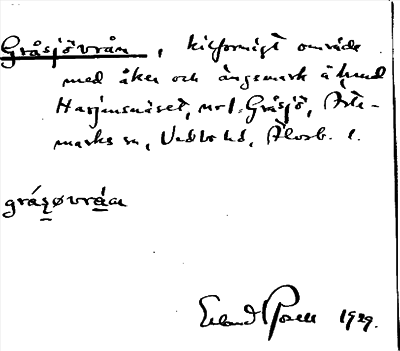 Gråsjövrån, kilformigt område
med åker och ängsmark å hmd
Harjensnäset, vid Gråsjö, Årte-
marks sn, Vedbo hd, Älvsb. l.
gråsøvråa
Erland Rosell 1929.